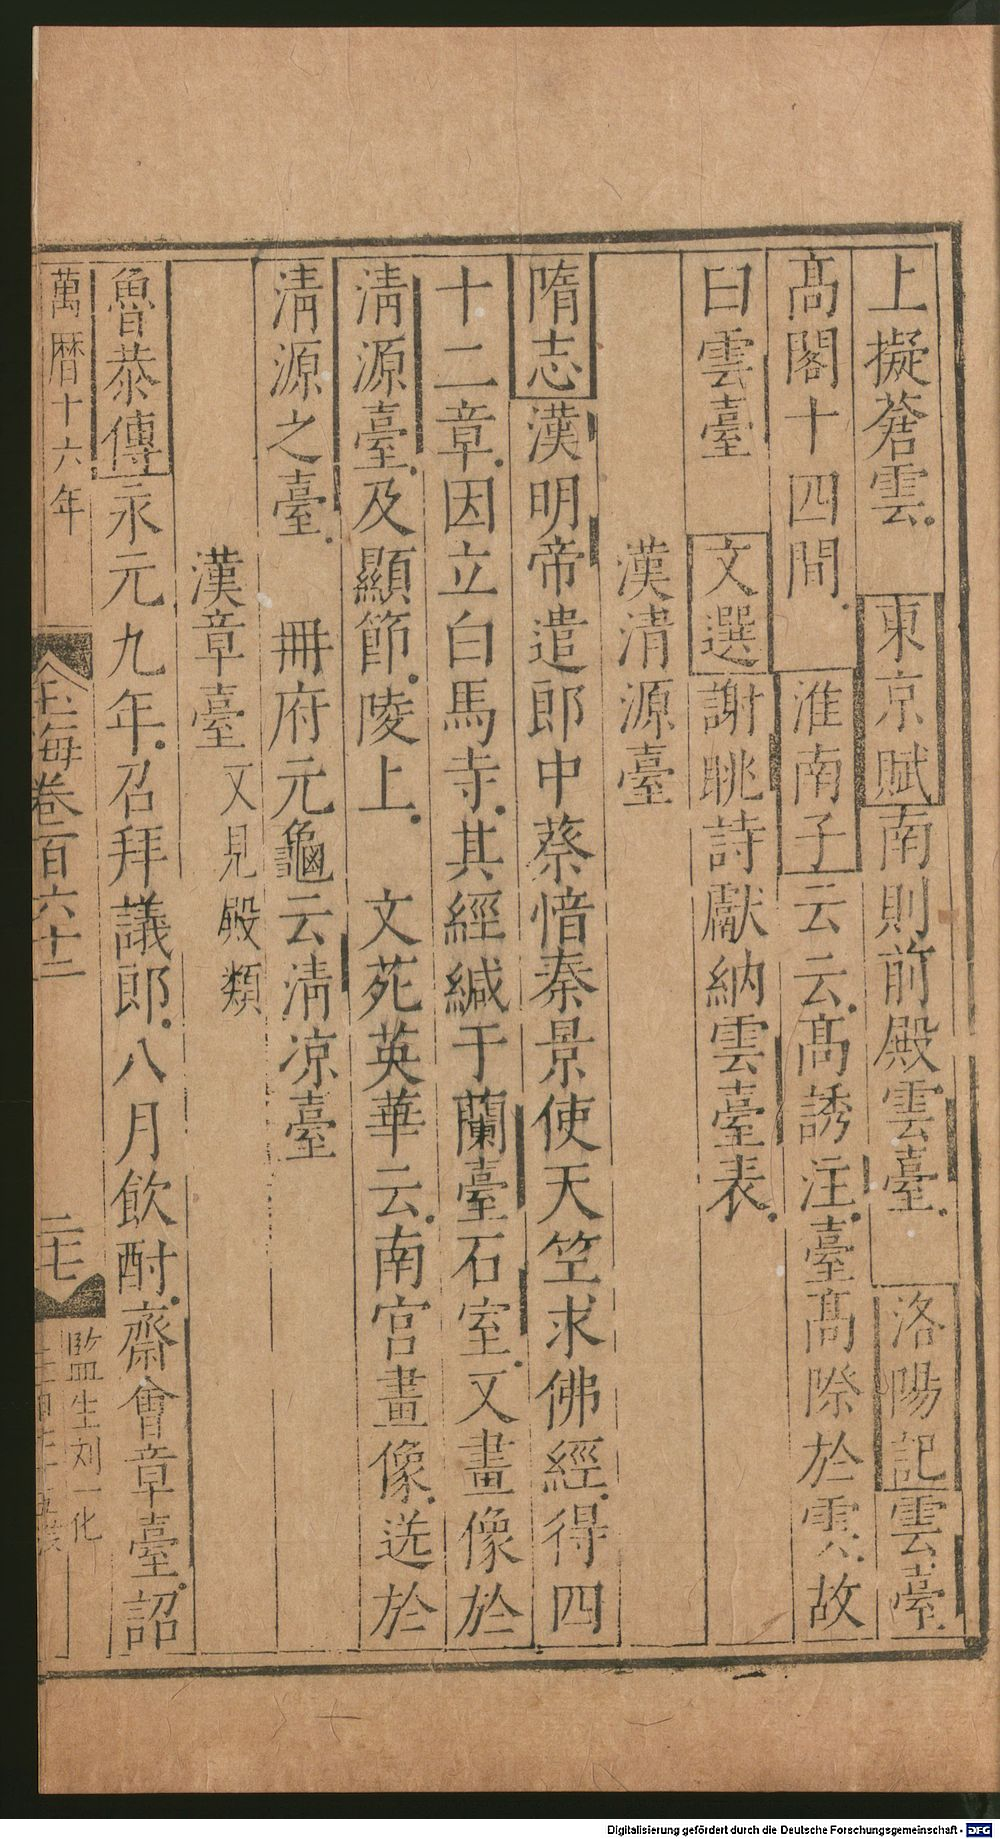 上擬蒼雲 東京賦南則前殿雲臺 洛陽記雲臺
髙閣十四間 淮南子云云髙誘注臺髙際於雲故
曰雲臺 文選謝眺詩獻納雲臺表
漢清源臺
隋志漢明帝遣郎中蔡愔秦景使天竺求佛經得四
十二章因立白馬寺其經緘于蘭臺石室又畫像於
清源臺及顯節陵上 文苑英華云南宮畫像迭於
清源之臺 冊府元龜云清凉臺
漢章臺又見殿類
魯恭傳永元九年召拜議郎八月飲酎齋會章臺詔
萬曆十六年
玉海卷百六十二
二七
監生刘一化
Digitalisierung gefördert durch die Deutsche Forschungsgemeinschaft - DFG